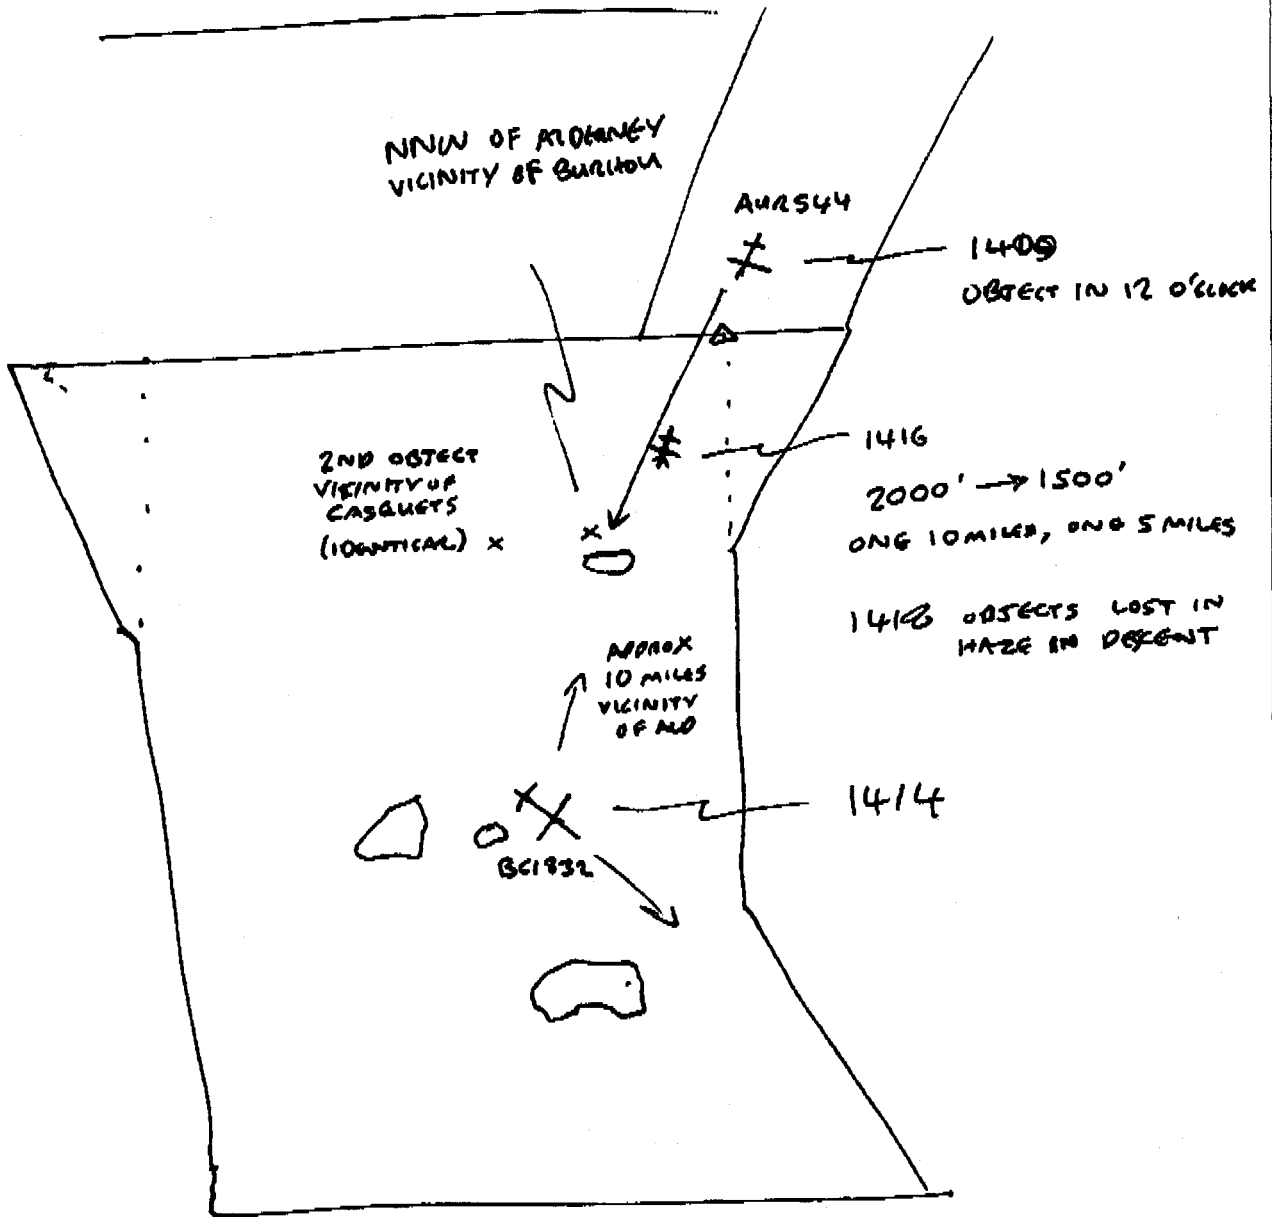 NNW OF ALDERNEY
VICINITY OF BURHOU
AUR544
1409
OBJECT IN 12 O'CLOCK
2ND OBJECT
VICINITY OF
CASQUETS
(IDENTICAL) X
X
1416
2000' → 1500'
ONE 10 MILES, ONE 5 MILES
1418 OBJECTS LOST IN
HAZE IN DESCENT
APPROX
10 MILES
VICINITY
OF ALD
1414
BCI832